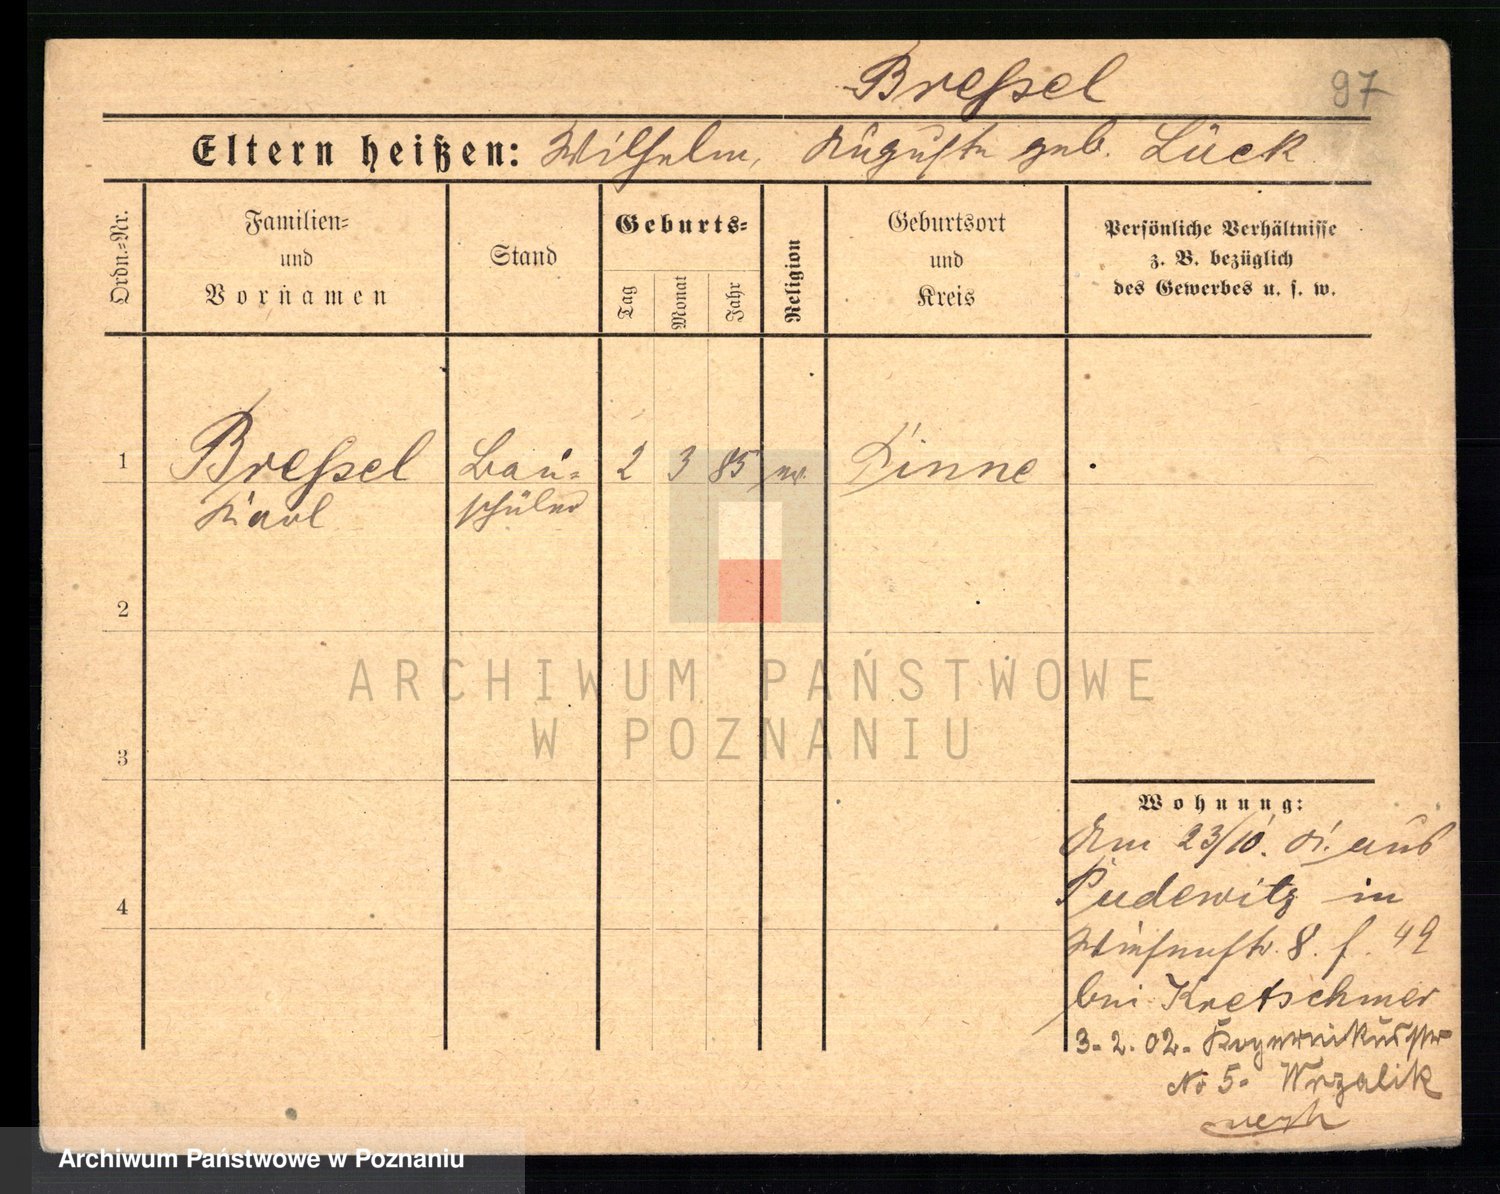 Breßel
97
Eltern heißen: Wilhelm, Auguste geb. Lück
Ordn.=Nr.
Familien=
und
Vornamen
Stand
Geburts=
Tag
Monat
Jahr
Religion
Geburtsort
und
Kreis
Persönliche Verhältnisse
z. B. bezüglich
des Gewerbes u. s. w.
1 Breßel Bau= 2 3 85 ev. Pinne
Karl schüler
2
3
4
ARCHIWUM PAŃSTWOWE
W POZNANIU
Wohnung:
Am 23/10. 01. aus
Pudewitz in
Wiesenstr. 8. f. 49
bei Kretschmer
3. 2. 02. Kopernikusstr
No 5. Wrzalik
Archiwum Państwowe w Poznaniu